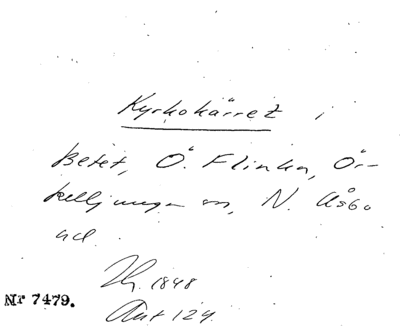 Kyrkokärret i
Betet, Ö. Flinka, Ör-
kelljunga sn, N. Åsbo
hd.
Th. 1848
Ant 124.
Nr 7479.